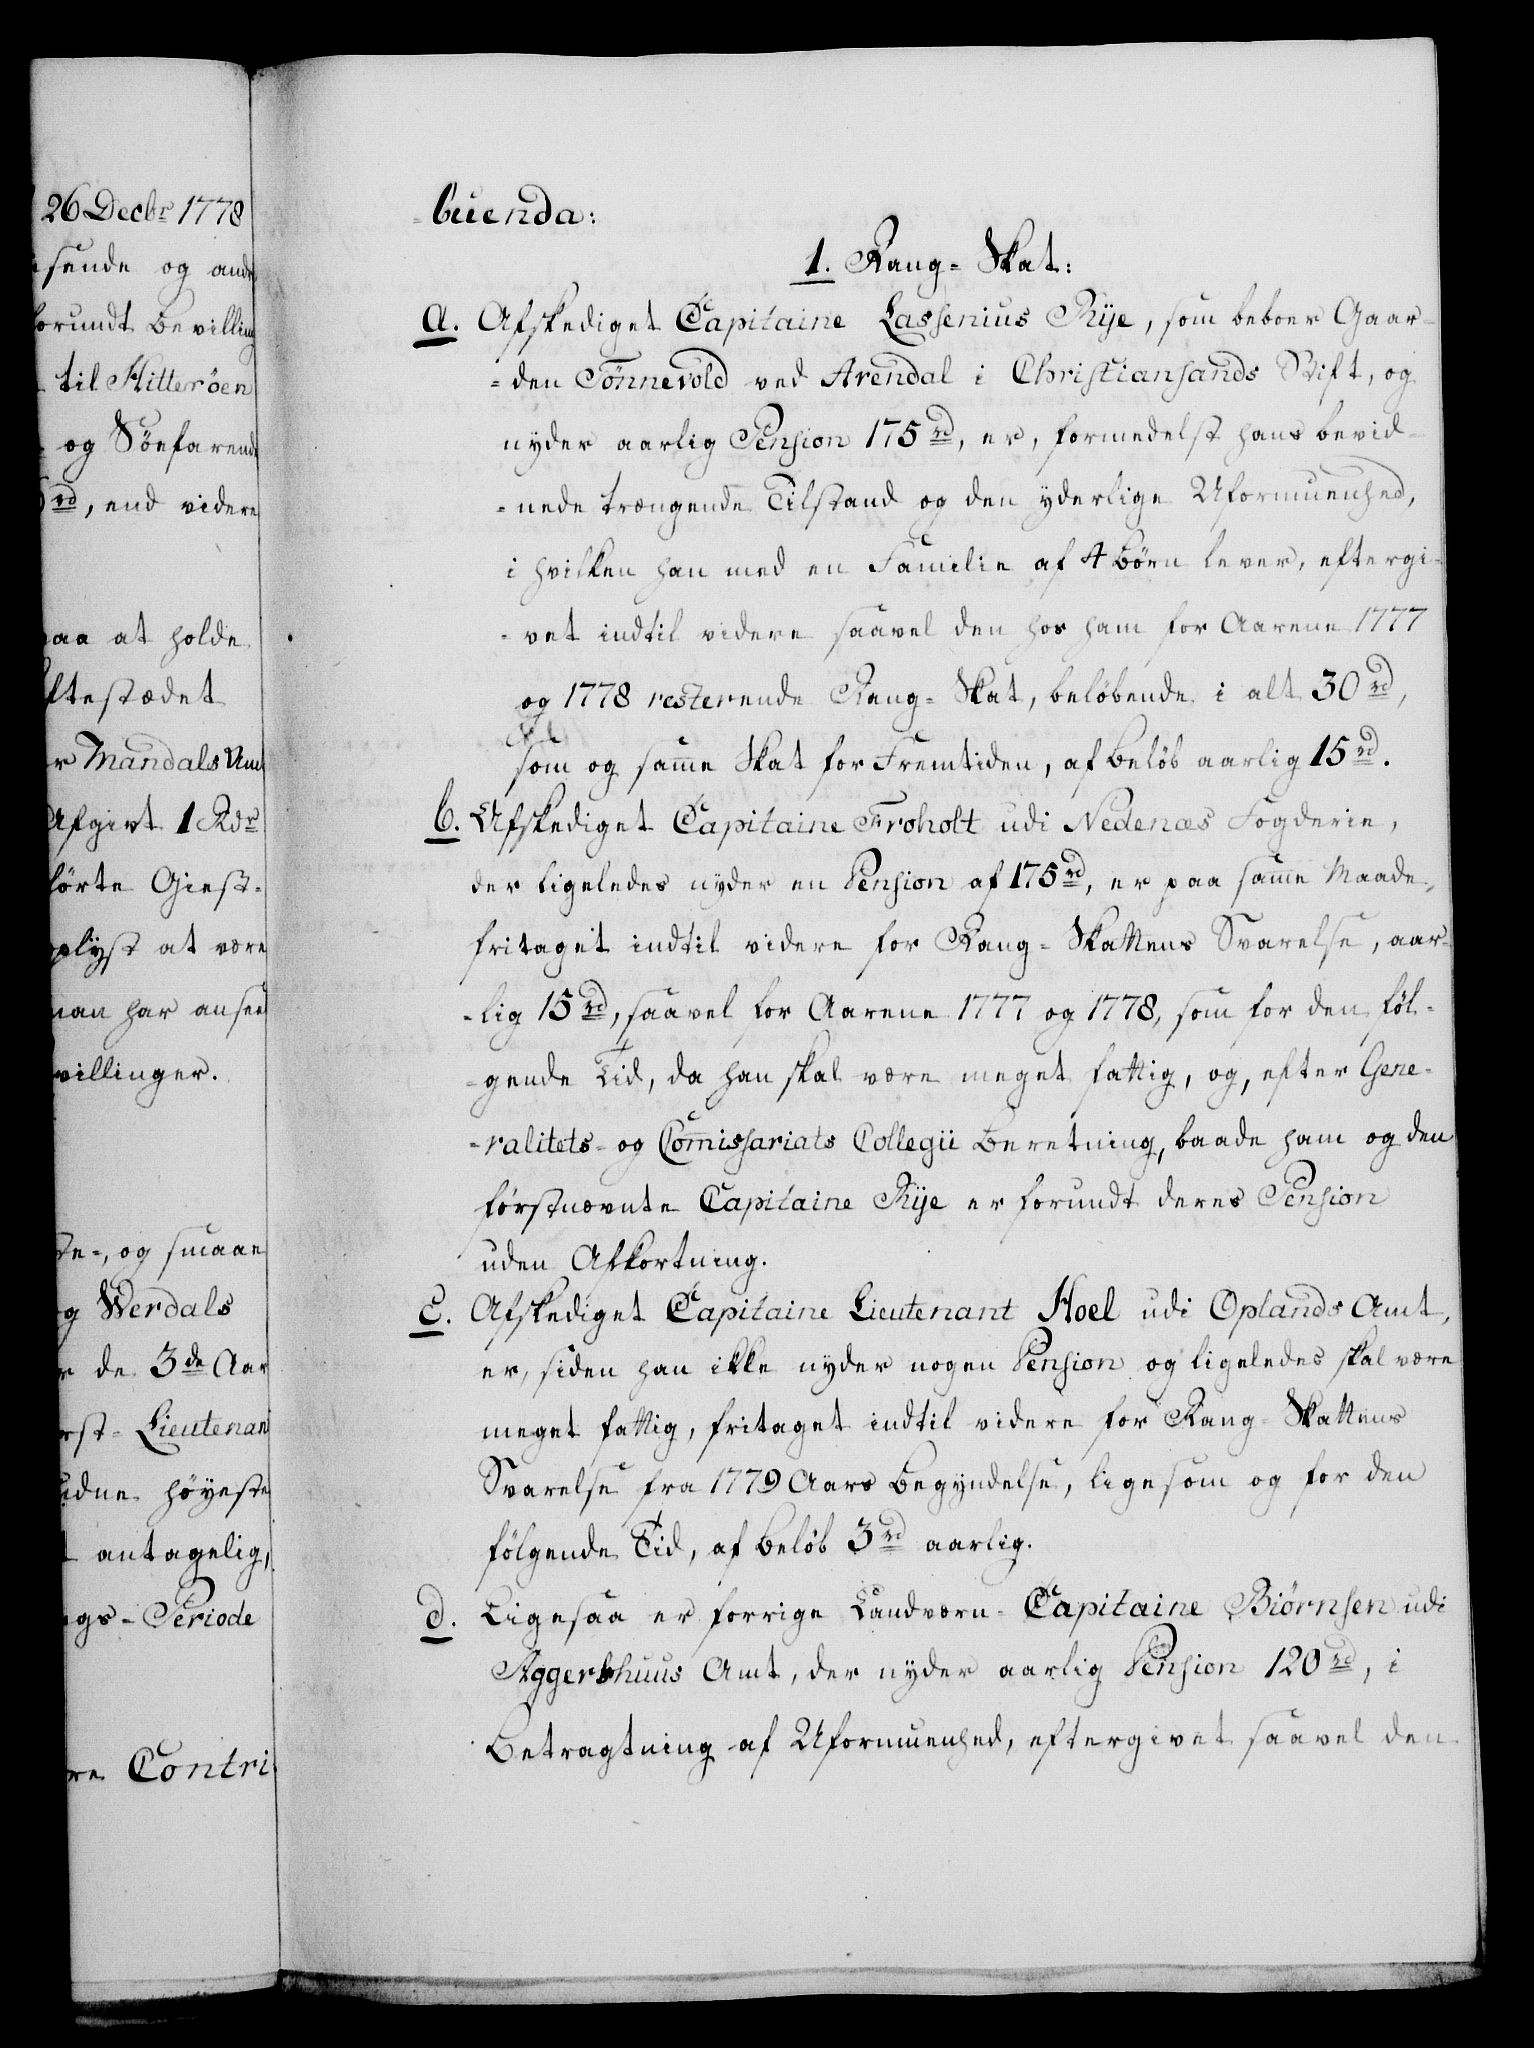 26 Decbr 1778
sende og andr
forundt Bevilling
til Hitterøen
og Søefarend
rd, end videre
paa at holde
ftestædet
r Mandals Amt
Afgivt 1 Rdr
førte Giest-
plyst at være
man har anseet
villinger.
de-, og smaae
og Werdals
r de 3de Aar
rst-Lieutenant
udne høyeste
t antagelig,
ngs-Periode
re Contri
-buenda:
1. Rang-Skat:
a. Afskediget Capitaine Lassenius Rije, som beboer Gaar-
-den Tönnevold ved Arendal i Christiansands Stift, og
nyder aarlig Pension 175 rd, er, formedelst hans bevid-
-nede trængende Tilstand og den yderlige Uformuenhed,
i hvilken han med en Familie af 4 Börn lever, eftergi-
-vet indtil videre saavel den hos ham for Aarene 1777
og 1778 resterende Rang-Skat, beløbende i alt 30 rd,
som og sam̅e Skat for Fremtiden, af Beløb aarlig 15 rd.
b. Afskediget Capitaine Froholt udi Nedenæs Fogderie,
der ligeledes nyder en Pension af 175 rd, er paa sam̅e Maade,
fritaget indtil videre for Rang-Skattens Svarelse, aar-
-lig 15 rd, saavel for Aarene 1777 og 1778, som for den föl-
-gende Tid, da han skal være meget fattig, og, efter Gene-
-ralitets- og Com̅issariats Collegii Beretning, baade ham og den
förstnævnte Capitaine Rije er forundt deres Pension
uden Afkortning.
c. Afskediget Capitaine Lieutenant Hoel udi Oplands Amt,
er, siden han ikke nyder nogen Pension og ligeledes skal være
meget fattig, fritaget indtil videre for Rang-Skattens
Svarelse fra 1779 Aars Begyndelse, ligesom og for den
følgende Tid, af Beløb 3 rd aarlig.
d. Ligesaa er forrige Landværn-Capitaine Biørnsen udi
Aggershuus Amt, der nyder aarlig Pension 120 rd, i
Betragtning af Uformuenhed, eftergivet saavel den